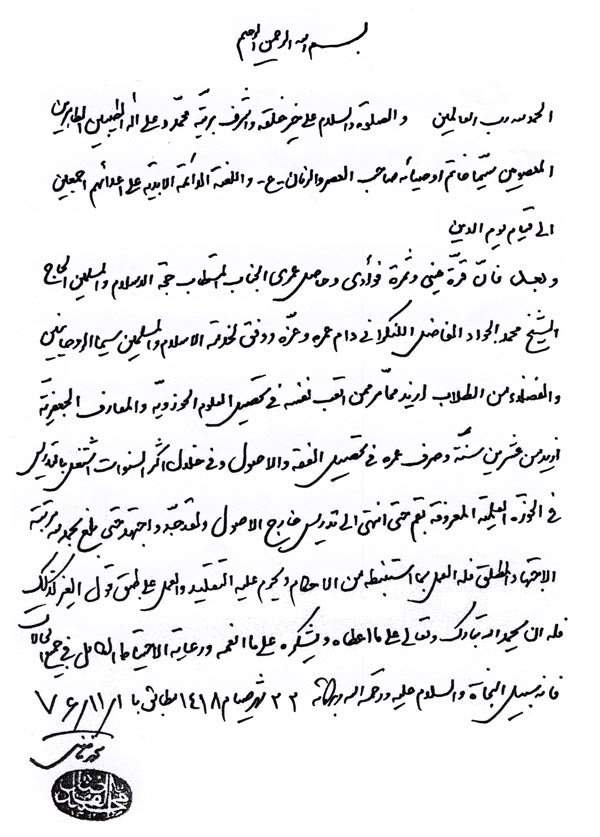 بسم الله الرحمن الرحیم
الحمد لله رب العالمین و الصلوة و السلام علی خیر خلقه و اشرف بریّته محمّد و علی آله الطیبین الطاهرین
المعصومین سیّما خاتم اوصیائه صاحب العصر والزمان -ع- و اللعنة الدائمة الابدیّة علی اعدائهم اجمعین
الی قیام یوم الدین
و بعد فانّ قرّة عینی و ثمرة فوأدی و حاصل عمری الجناب المستطاب حجة الاسلام و المسلمین الحاج
الشیخ محمد الجواد الفاضل اللنکرانی دام عمره و عزّه و وفق لخدمة الاسلام والمسلمین سیما الروحانیین
والفضلاء من الطلاب ارید ممّن اتعب نفسه فی تحصیل العلوم الحوزویّة والمعارف الجعفریّة
ازید من عشرین سنّة و صرف عمره فی تحصیل الفقه والاصول و فی خلال اکثر السنوات اشتغل بالتدریس
فی الحوزة العلمیّة المعروفة بقم حتی انتهی الی تدریس خارج الاصول و لقد جدّ و اجتهد حتی بلغ بحمد لله مرتبة
الاجتهاد المطلق فله العمل بما استنبطه من الاحکام و یحرم علیه التقلید والعمل علی طبق قول الغیر کذلک
فله ان یحمد الله تبارک و تعالی علی ما اعطاه و یشکره علی ما انعمه و رعایة الاحتیاط الکامل فی جمیع الحالات
فانه سبیل النجاة والسلام علیه و رحمة الله و برکاته ٢٢ شهر صیام ١٤١٨ مطابق با ٧٦/١١/١
محمد فاضل